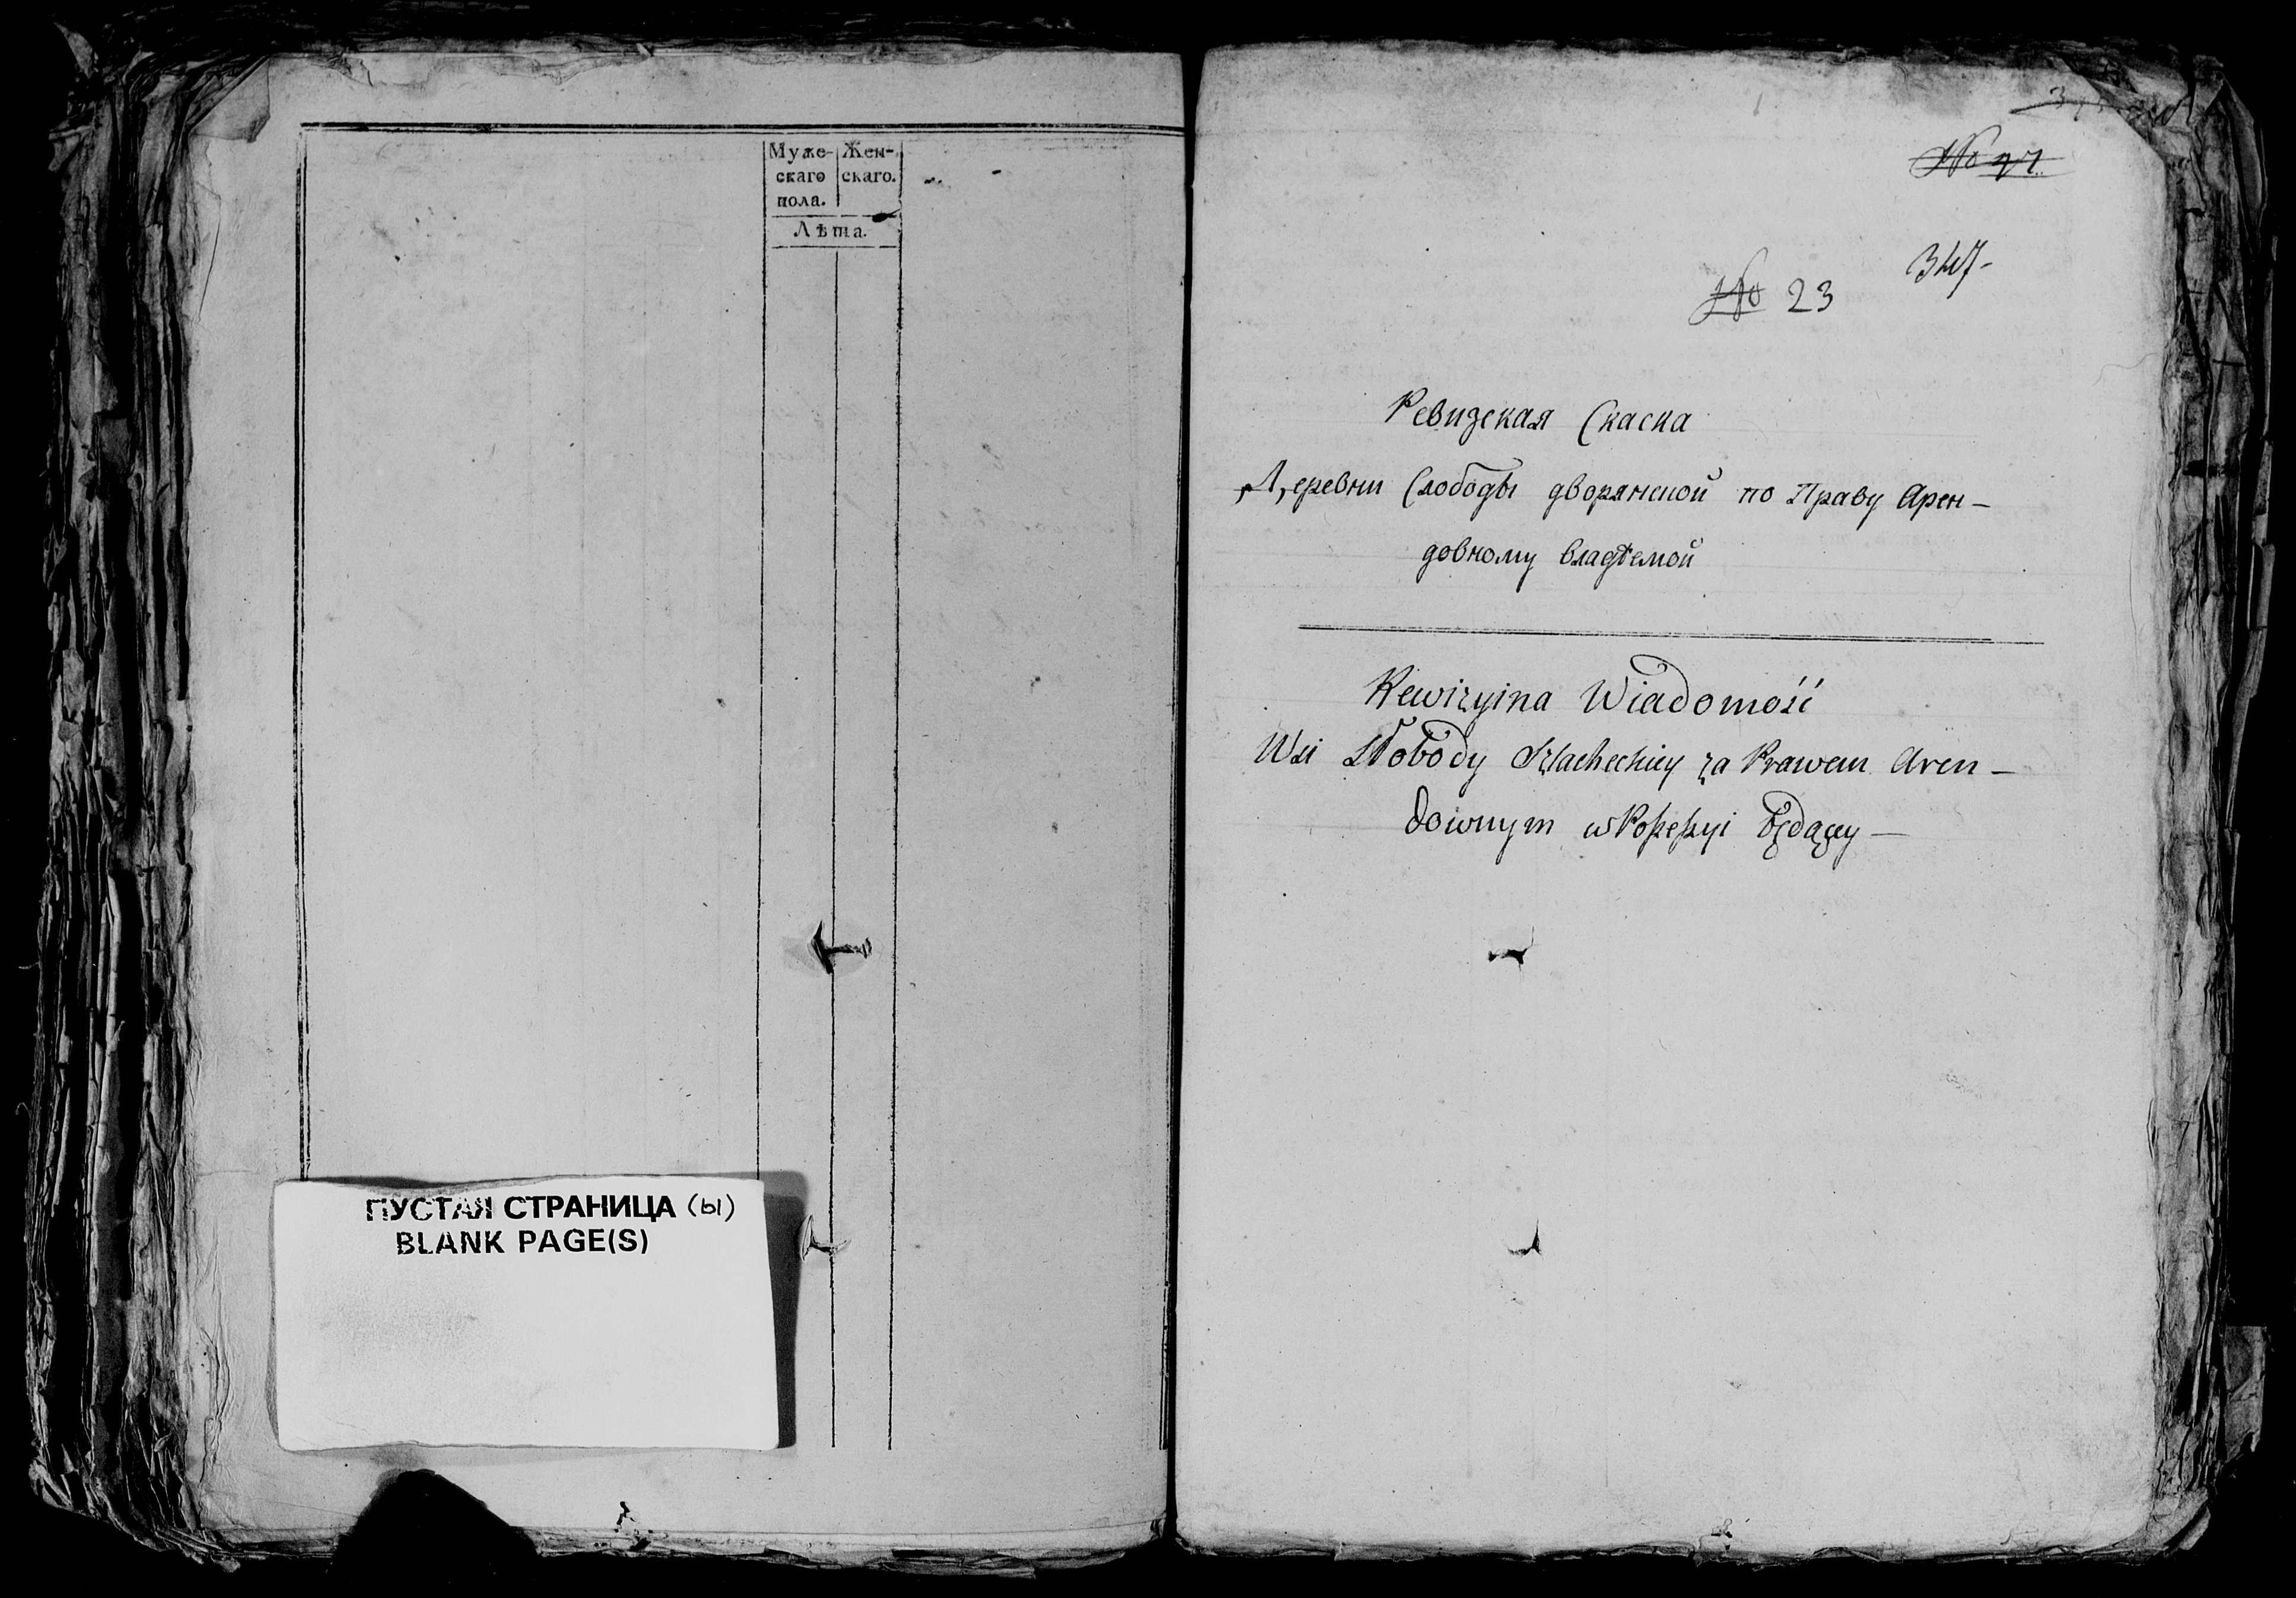 Муже- Жен-
скаго скаго.
пола.
Лѣта.
ПУСТАЯ СТРАНИЦА (ы)
BLANK PAGE(S)
347-
№ 23
Ревизская Скаска
Деревни Слободы дворянской по Праву Арен-
довному владѣемой
Rewizyina Wiadomość
Wsi Słobody Szlacheckiey za Prawem Aren-
downym w Possessyi będącey